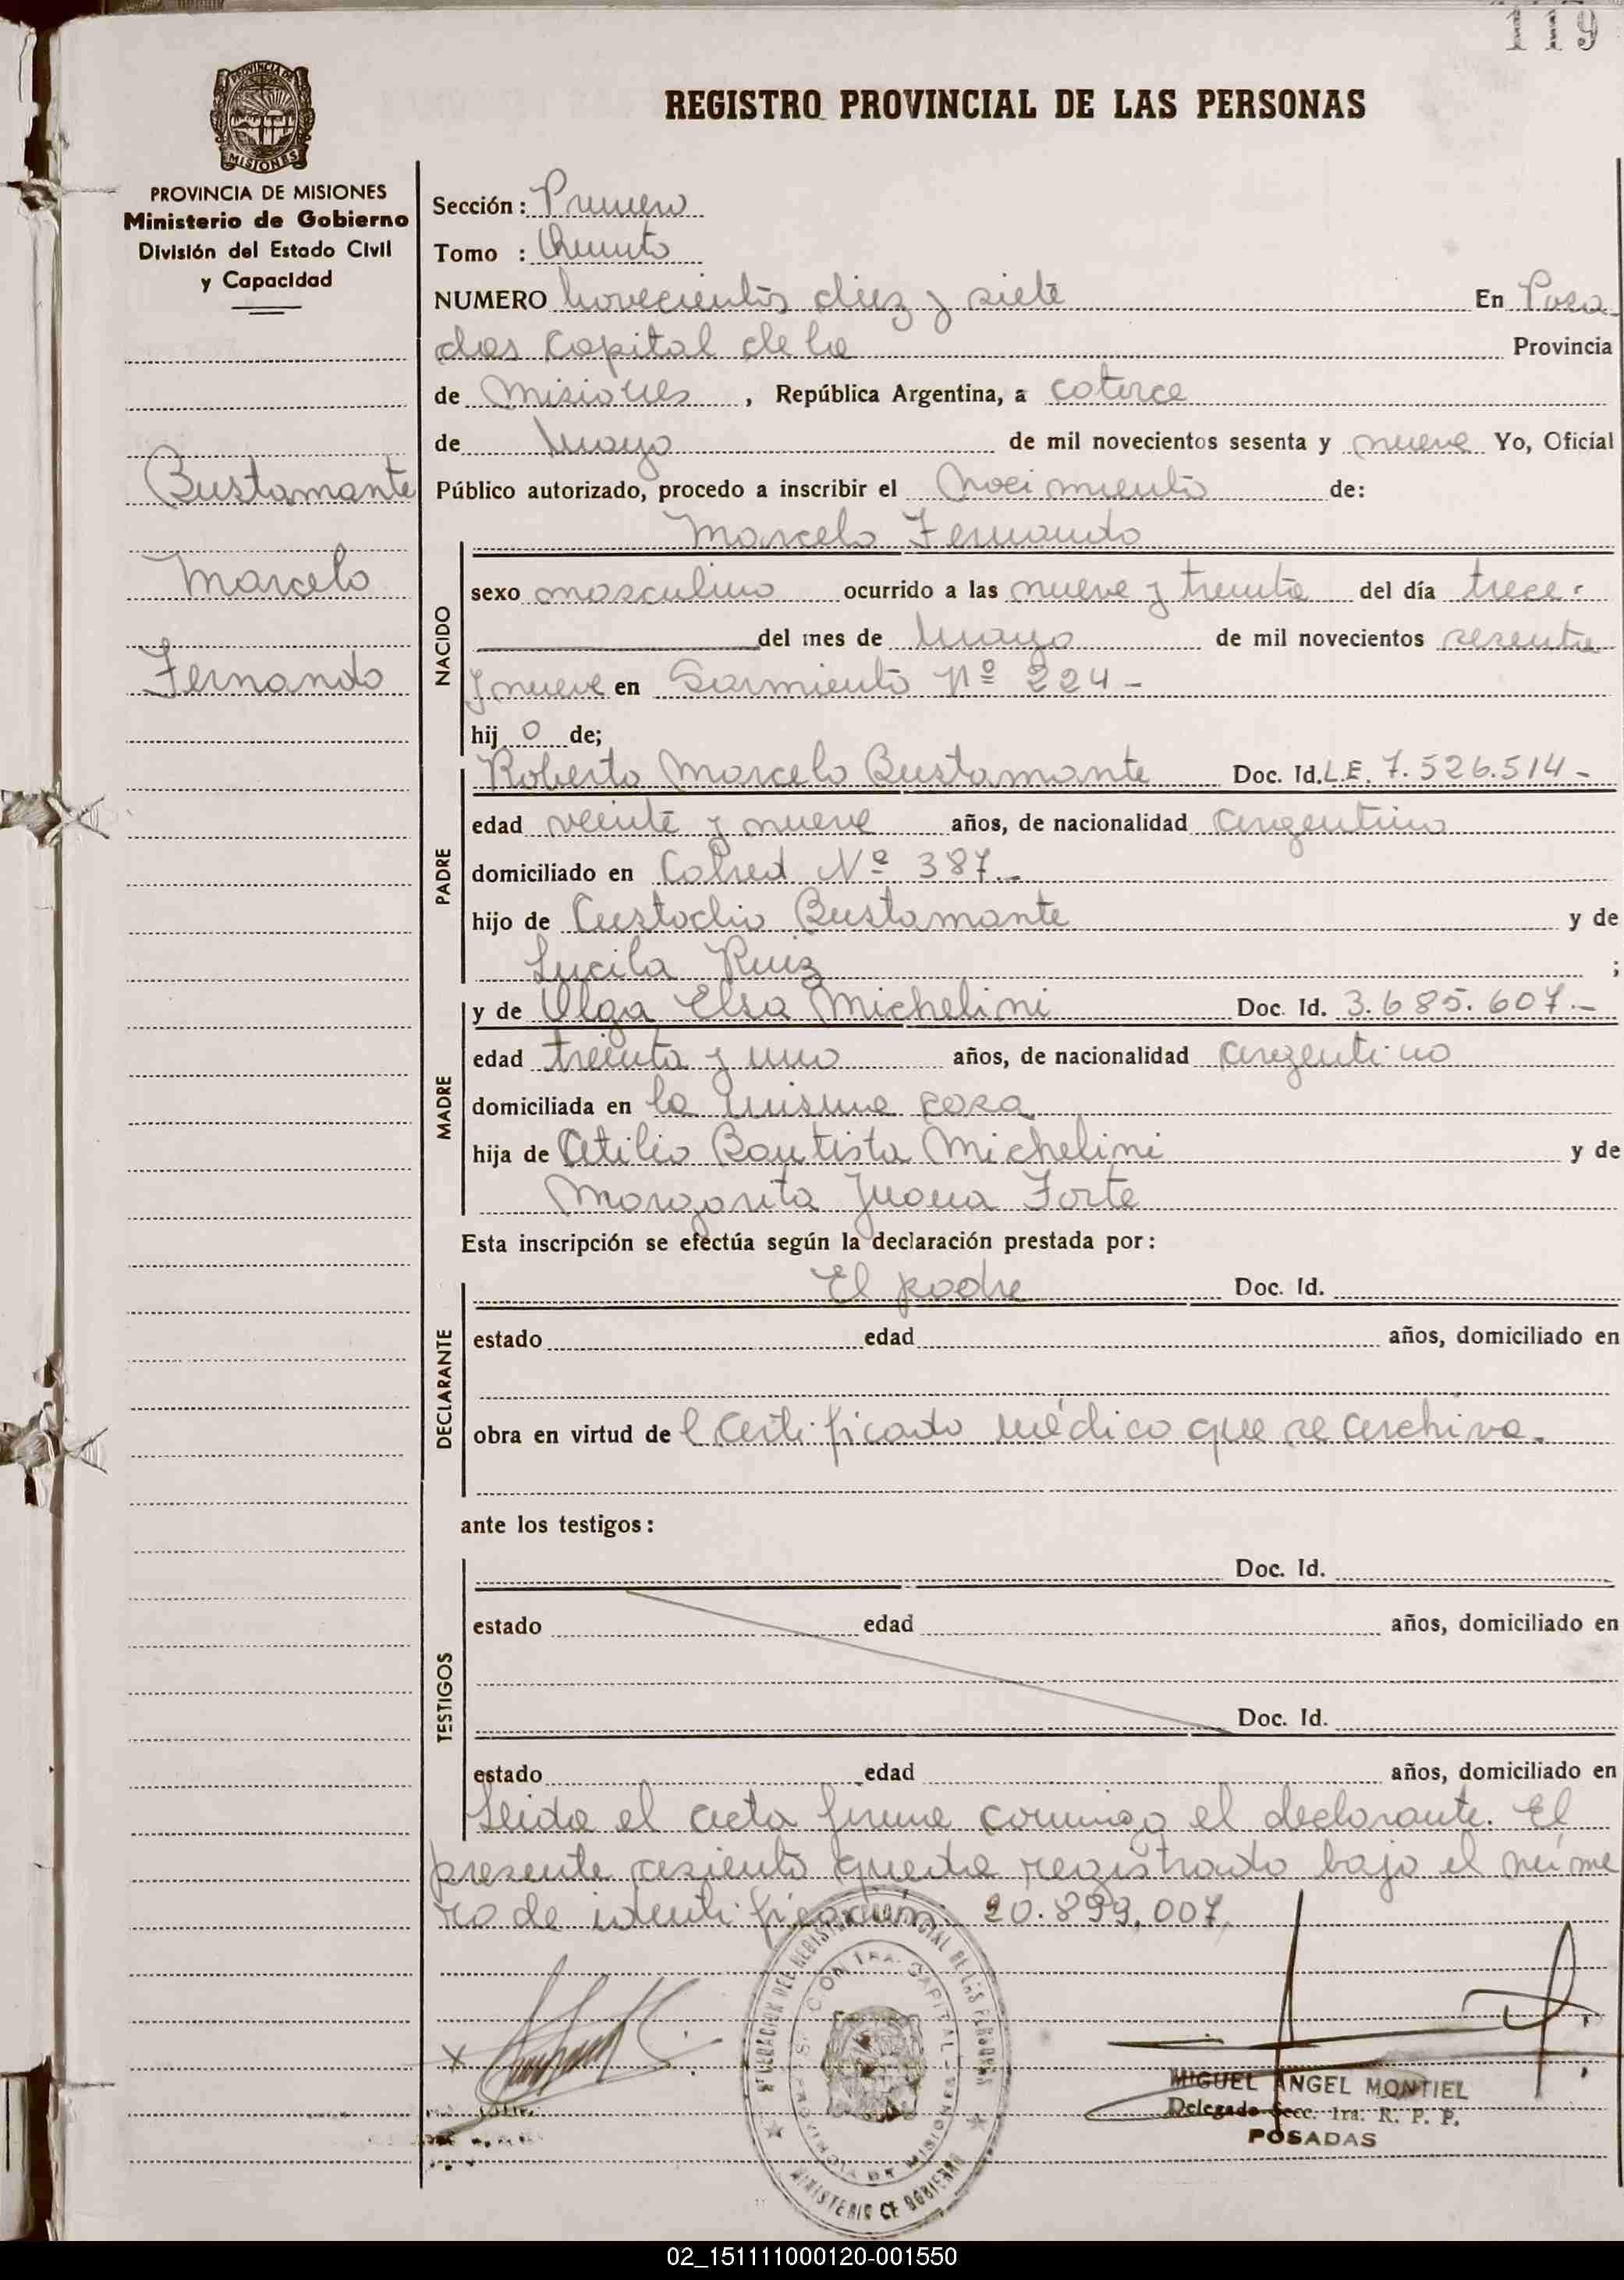 119
PROVINCIA DE MISIONES
REGISTRO PROVINCIAL DE LAS PERSONAS
PROVINCIA DE MISIONES
Ministerio de Gobierno
División del Estado Civil
y Capacidad
Bustamante
Marcelo
Fernando
Sección: Primero
Tomo : Quinto
NUMERO novecientos diez y siete En Posa
das Capital de la Provincia
de Misiones, República Argentina, a catorce
de Mayo de mil novecientos sesenta y nueve Yo, Oficial
Público autorizado, procedo a inscribir el Nacimiento de:
Marcelo Fernando
NACIDO
sexo masculino ocurrido a las nueve y treinta del día trece-
del mes de Mayo de mil novecientos sesenta
y nueve en Sarmiento Nº 224-
hij o de;
PADRE
Roberto Marcelo Bustamante Doc. Id. L.E. 7.526.514-
edad veinte y nueve años, de nacionalidad argentino
domiciliado en Nº 387.-
hijo de Custodio Bustamante y de
Lucila Ruiz ;
MADRE
y de Olga Elsa Michelini Doc. Id. 3.685.607.-
edad treinta y uno años, de nacionalidad argentino
domiciliada en la misma casa
hija de Atilio Bautista Michelini y de
Margarita Juana Forte
Esta inscripción se efectúa según la declaración prestada por:
DECLARANTE
El padre Doc. Id.
estado edad años, domiciliado en
obra en virtud del Certificado médico que se archiva.
ante los testigos:
TESTIGOS
Doc. Id.
estado edad años, domiciliado en
Doc. Id.
estado edad años, domiciliado en
Leida el acta firma conmigo el declarante. El
presente asiento queda registrado bajo el núme
ro de identificación 20.899.007
DELEGACION DEL REGISTRO PROVINCIAL DE LAS PERSONAS
SECCION 1RA. CAPITAL
PROVINCIA DE MISIONES
MINISTERIO DE GOBIERNO
MIGUEL ANGEL MONTIEL
Delegado Secc. 1ra. R. P. P.
POSADAS
02_151111000120-001550